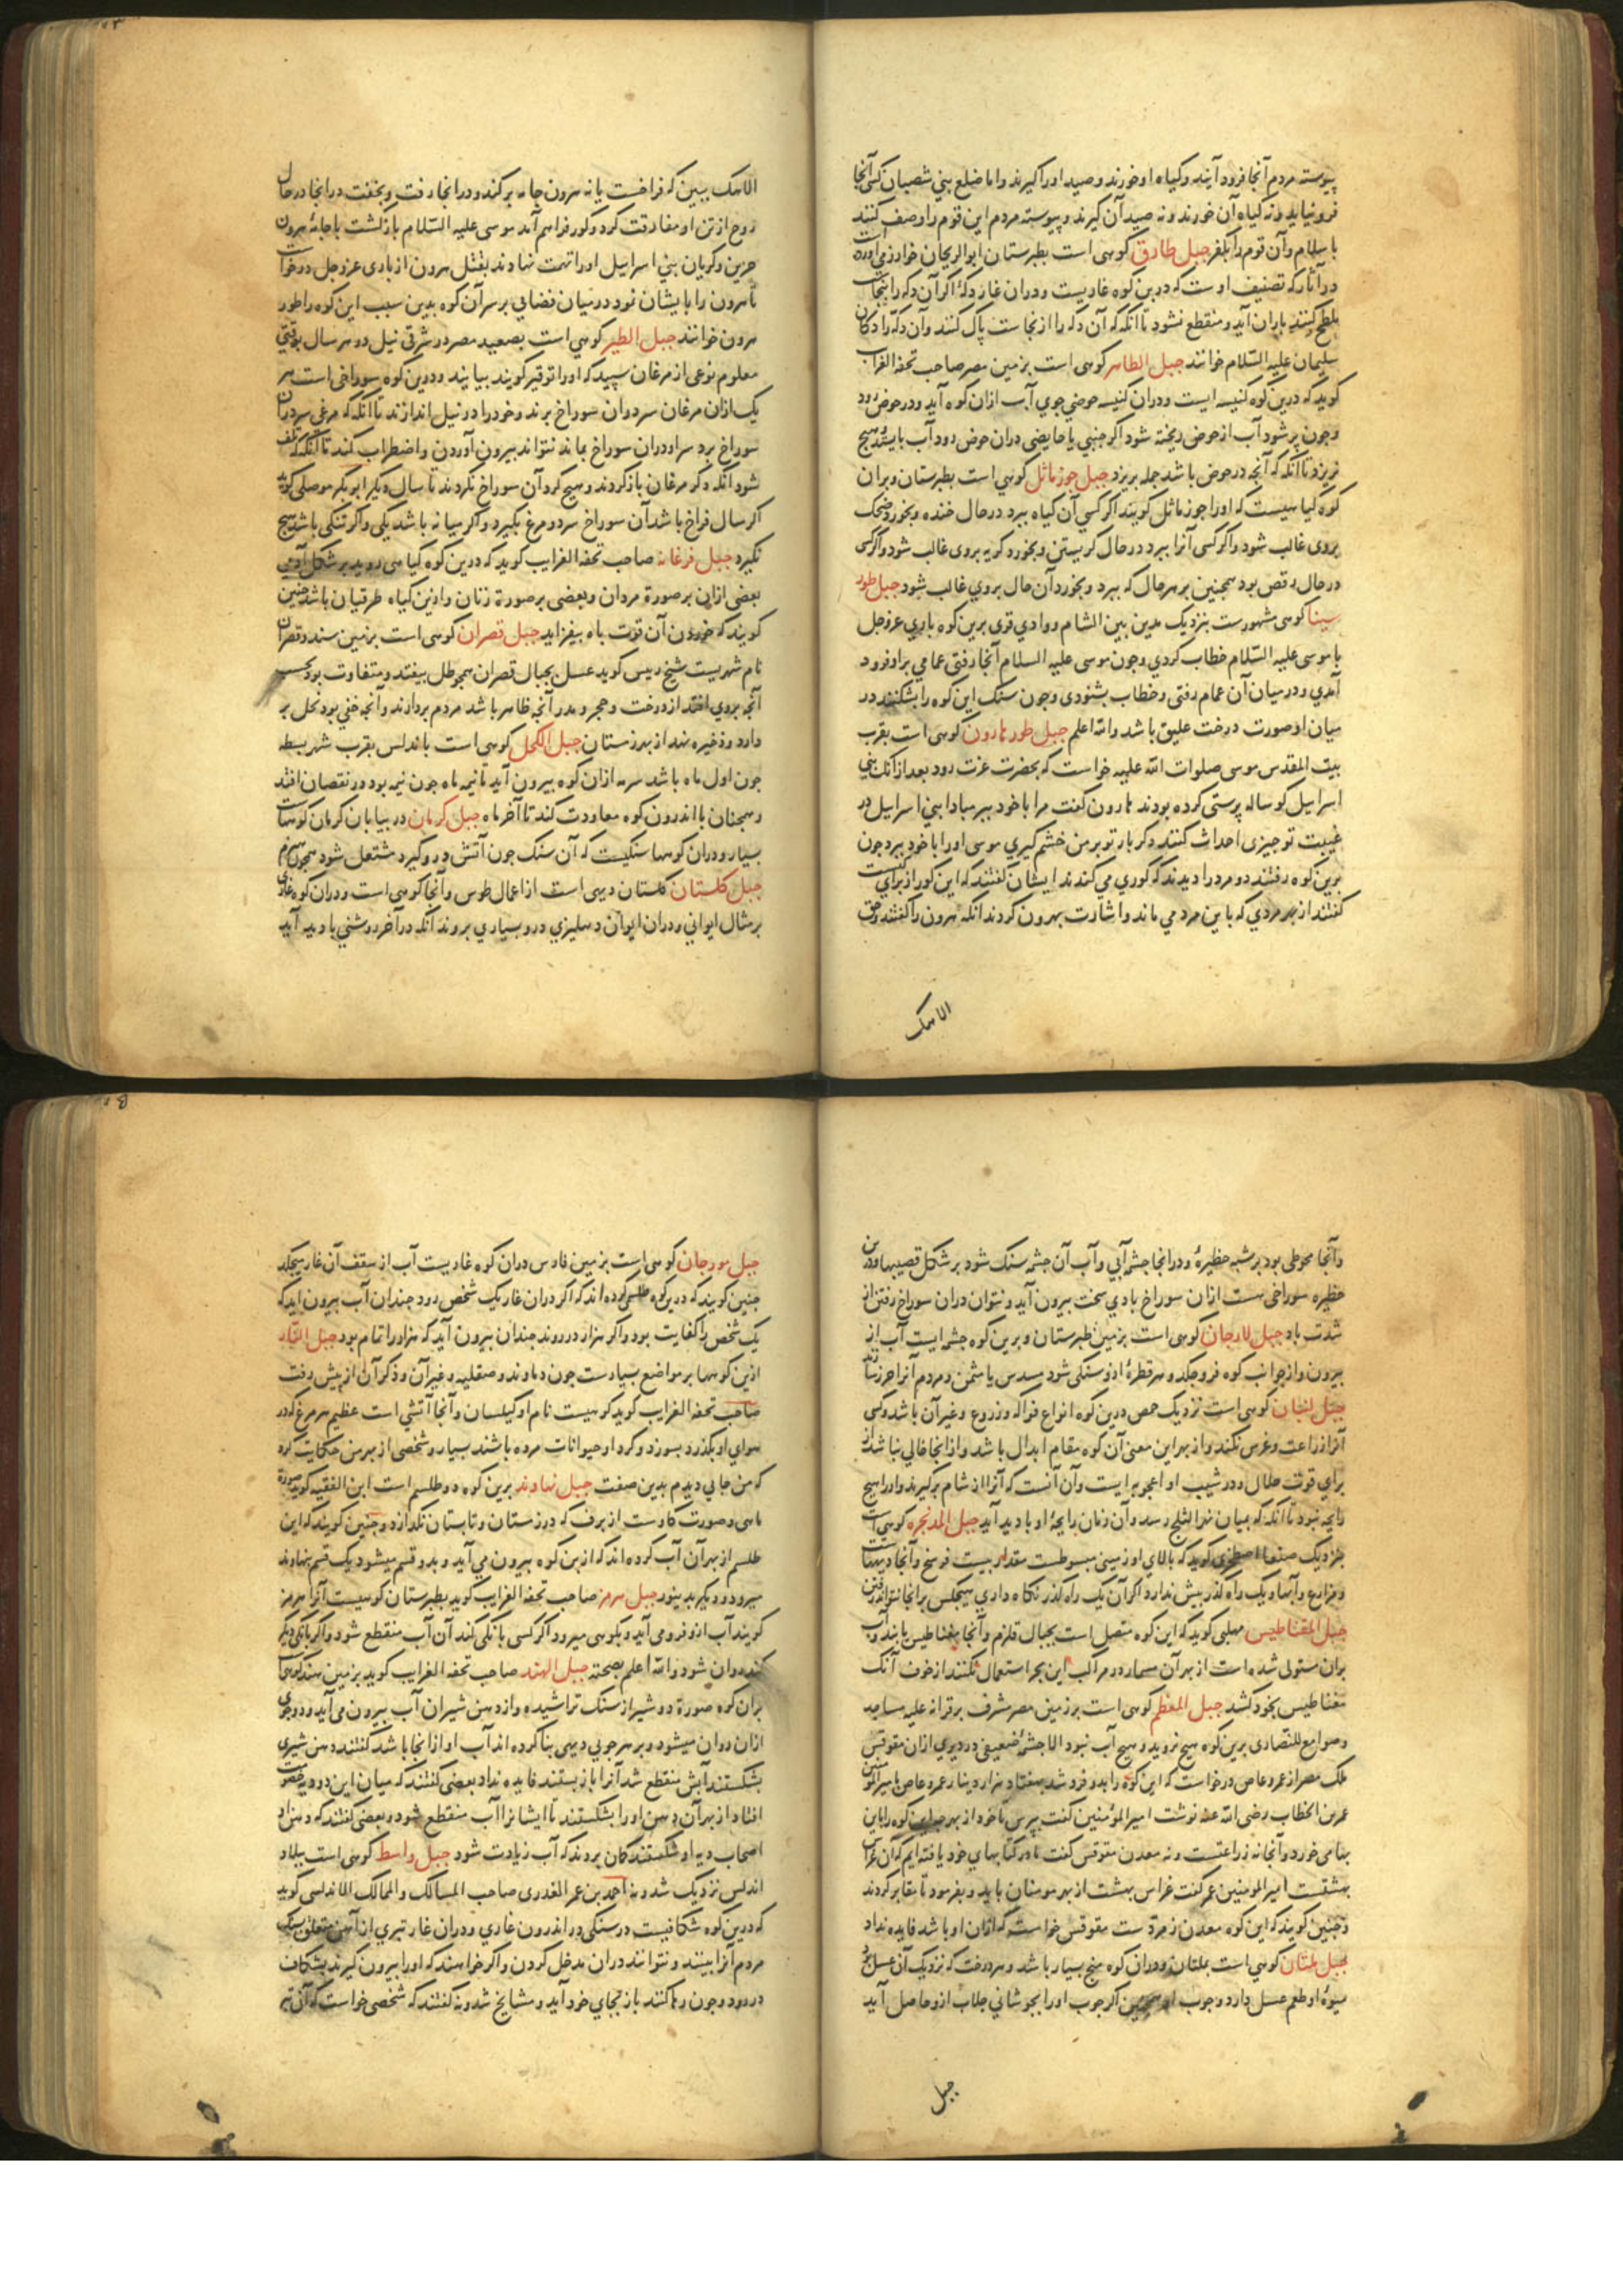 پیوسته مردم آنجا فرود آیند و کیاه او خورند و صید او را کیرند و اما ضلع بنی شصیان کسی آنجا
فرو نیاید و نه کیاه آن خورند و نه صید آن کیرند و پیوسته مردم این قوم را وصف کنند
باسلام و آن قوم را بکفر جبل طارق کوهی است بطبرستان ابو الریحان خوارزمی آورده است
در آثار که تصنیف اوست که درین کوه غاریست و دران غار دکهٔ اگر آن دکه را بنجاست
ملطخ کنند باران آید و منقطع نشود تا آنکه که آن دکه را از نجاست پاک کنند و آن دکه را دکان
سلیمان علیه السّلام خوانند جبل الطاهر کوهی است بزمین مصر صاحب تحفه الغرایب
کوید که درین کوه کنیسه ایست و دران کنیسه حوضی جوی آب ازان کوه آید و در حوض رود
و جون پر شود آب از حوض ریخته شود اکر جنبی یا حایضی دران حوض رود آب بایستد هیج
نریزد تا آنکه که آنجه در حوض باشد جمله بریزد جبل جوز ماثل کوهی است بطبرستان و بران
کوه کیاهیست که او را جوز ماثل کویند اکر کسی آن کیاه ببرد در حال خنده و بخورد ضحک
بروی غالب شود و اکر کسی آنرا ببرد در حال کریستن و بخورد کریه بروی غالب شود و اکر کسی
در حال رقص بود همجنین بر هر حال که ببرد و بخورد آن حال بروی غالب شود جبل طور
سینا کوهی مشهورست بنزدیک مدین بین الشام و وادی قری برین کوه باری عز وجل
با موسی علیه السّلام خطاب کردی و جون موسی علیه السلام آنجا رفتی غمامی براو فرود
آمدی و در میان آن غمام رفتی و خطاب بشنودی و جون سنک این کوه را بشکنند در
میان او صورت درخت علیق باشد والله اعلم جبل طور هارون کوهی است بقرب
بیت المقدس موسی صلوات الله علیه خواست که بحضرت عزت رود بعد از آنک بنی
اسرائیل کوساله پرستی کرده بودند هارون کفت مرا با خود ببر مبادا بنی اسرائیل در
غیبت تو جیزی احداث کنند دکر بار تو بر من خشم کیری موسی او را با خود ببرد جون
برین کوه رفتند دو مرد را دیدند که کوری می کندند ایشان کفتند که این کور از برای کیست
کفتند از بهر مردی که باین مرد می ماند و اشارت بهرون کردند آنکه هرون را کفتند وحق
الاهک
الاهک ببین که فراخست یا نه هرون جامه برکند و در انجا رفت و بخفت در انجا در حال
روح از تن او مفارقت کرد و کور فراهم آمد موسی علیه السّلام بازکشت با جامهٔ هرون
حزین و کریان بنی اسرائیل او را تهمت نهادند بقتل هرون از باری عز وجل درخواست
تا هرون را بایشان نمود در میان فضایی بر سر آن کوه بدین سبب این کوه را طور
هرون خوانند جبل الطیر کوهی است بصعید مصر در شرقی نیل در هر سال بوقتی
معلوم نوعی از مرغان سپید که او را توقیر کویند بیایند و درین کوه سوراخی است هر
یک ازان مرغان سر دران سوراخ برند و خود را در نیل اندازند تا آنکه که مرغی سر دران
سوراخ برد سر او دران سوراخ بماند نتواند بیرون آوردن و اضطراب کند تا آنکه که تلف
شود آنکه دکر مرغان بازکردند و هیج کرد آن سوراخ نکردند تا سال دیکر ابو بکر موصلی کوید
اکر سال فراخ باشد آن سوراخ سر دو مرغ بکیرد و اکر میانه باشد یکی و اکر تنکی باشد هیج
نکیرد جبل فرغانه صاحب تحفه الغرایب کوید که درین کوه کیاهی روید بر شکل آدمی
بعضی ازان بر صورة مردان و بعضی بر صورة زنان و ازین کیاه طرقیان باشد جنین
کویند که خوردن آن قوت باه بیفزاید جبل قصران کوهی است بزمین سند و قصران
نام شهریست شیخ رییس کوید عسل بجبال قصران همجو طل بیفتد و متفاوت بود بحسب
آنجه بروی افتد از درخت و حجر و مدر آنجه ظاهر باشد مردم بردارند و آنجه خفی بود نحل بر
دارد و ذخیره نهد از بهر زمستان جبل الکحل کوهی است باندلس بقرب شهر بسطه
جون اول ماه باشد سرمه ازان کوه بیرون آید تا نیمه ماه جون نیمه بود در نقصان افتد
و همجنان با اندرون کوه معاودت کند تا آخر ماه جبل کرمان در بیابان کرمان کوههاست
بسیار و دران کوهها سنکیست که آن سنک جون آتش درو کیرد مشتعل شود همجون هیزم
جبل کلستان کلستان دیهی است از اعمال طوس و آنجا کوهی است و دران کوه غاری
بر مثال ایوانی و دران ایوان دهلیزی درو بسیاری بروند آنکه در آخر روشنی بادید آید
و آنجا محوطی بود بر شبه حظیرهٔ و در انجا جشمه آبی و آب آن جشمه سنک شود بر شکل قصیبها و درین
حظیره سوراخی هست ازان سوراخ بادی سخت بیرون آید و نتوان دران سوراخ رفتن از
شدت باد جبل لارجان کوهی است بزمین طبرستان و برین کوه جشمه ایست آب از
بیرون و از جوانب کوه فرو جکد و هر قطرهٔ ازو سنکی شود مسدس یا مثمن و مردم آنرا خرز سازند
جبل لبنان کوهی است نزدیک حمص درین کوه انواع فواکه و زروع و غیر آن باشد و کسی
آنرا زراعت و غرس نکند و از بهر این معنی آن کوه مقام ابدال باشد و از انجا خالی نباشد از
برای قوت حلال و در شیب او اعجوبه ایست و آن آنست که آنرا از شام برکیرند و او را هیج
رایحه نبود تا آنکه که بمیان نهر الثلج رسد و آن زمان رایحهٔ او بادید آید جبل المدنجره کوهی است
بنزدیک صنعا اصطخری کوید که بالای او زمینی مبسوطست مقدار بیست فرسخ و آنجا دیههاست
و مزارع و آبها و یک راه کذر بیش ندارد اکر آن یک راه کذر نکاه داری هیجکس برانجا نتواند رفتن
جبل المغناطیس مهلبی کوید که این کوه متصل است بجبال قلزم و آنجا مغناطیس یابند و آب
بران مستولی شده است از بهر آن مسمار در مراکب این بحر استعمال نکنند از خوف آنک
مغناطیس بخود کشد جبل المقطم کوهی است بر زمین مصر مشرف بر قرافه علیه مساجد
و صوامع للنصاری برین کوه هیج نروید و هیج آب نبود الا جشمهٔ ضعیفی در دیری ازان مقوقس
ملک مصر از عمرو عاص درخواست که این کوه را بدو فروشد بهفتاد هزار دینار عمرو عاص با امیر المومنین
عمر بن الخطاب رضی الله عنه نوشت امیر المؤمنین کفت بپرس تا خود از بهر جه این کوه را باین
بها می خرد و آنجا نه زراعتست و نه معدن مقوقس کفت ما در کتابهای خود یافته ایم که آن غراس
بهشتست امیر المومنین عمر کفت غراس بهشت از بهر مومنان باید و بفرمود تا مقابر کردند
و جنین کویند که این کوه معدن زمردست مقوقس خواست که ازان او باشد فایده نداد
جبل ملتان کوهی است بملتان و دران کوه منج بسیار باشد و هر درخت که نزدیک آن عسل بود
میوهٔ او طعم عسل دارد و جوب او همجنین اکر جوب او را بجوشانی جلاب ازو حاصل آید
جبل
جبل مورجان کوهی است بزمین فارس دران کوه غاریست آب از سقف آن غار میجکد
جنین کویند که درین کوه طلسمی کرده اند که اکر دران غار یک شخص رود جندان آب بیرون آید که
یک شخص را کفایت بود و اکر هزار در روند جندان بیرون آید که هزار را تمام بود جبل النار
ازین کوهها بر مواضع بسیارست جون دماوند و صقلیه و غیر آن و ذکر آن از پیش رفت
صاحب تحفه الغرایب کوید کوهیست نام او کیلسان و آنجا آتشی است عظیم هر مرغ که در
هوای او بکذرد بسوزد و کرد او حیوانات مرده باشند بسیار و شخصی از بهر من حکایت کرد
که من جایی دیدم بدین صفت جبل نهاوند برین کوه دو طلسم است ابن الفقیه کوید صورة
ماهی و صورت کاوست از برف که در زمستان و تابستان نکدازد و جنین کویند که این
طلسم از بهر آن آب کرده اند که ازین کوه بیرون می آید و بدو قسم میشود یک قسم بنهاوند
میرود و دیکر بدینور جبل هرمز صاحب تحفه الغرایب کوید بطبرستان کوهیست آنرا هرمز
کویند آب ازو فرو می آید و بکوهی میرود اکر کسی بانکی کند آن آب منقطع شود و اکر بانکی دیکر
کند روان شود والله اعلم بصحته جبل الهند صاحب تحفه الغرایب کوید بزمین هند کوهیست
بران کوه صورة دو شیر از سنک تراشیده و از دهن شیران آب بیرون می آید و دو جوی
ازان روان میشود و بر هر جویی دیهی بنا کرده اند آب او از انجا باشد کفتند دهن شیری
بشکستند آبش منقطع شد آنرا باز بستند فایده نداد بعضی کفتند که میان این دو دیه خصومت
افتاد از بهر آن دهن او را بشکستند تا ایشانرا آب منقطع شود و بعضی کفتند که دهن او
اصحاب دیه او شکستند کمان بردند که آب زیادت شود جبل واسط کوهی است ببلاد
اندلس نزدیک شذونه احمد بن عمر العذری صاحب المسالک والممالک الاندلسی کوید
که درین کوه شکافیست در سنکی در اندرون غاری و دران غار تبری از آهن متعلق بسنک
مردم آنرا بینند و نتوانند دران مدخل کردن و اکر خواهند که او را بیرون کیرند بشکاف
در رود و جون رها کنند باز بجای خود آید و مشایخ شذونه کفتند که شخصی خواست که آن تبر